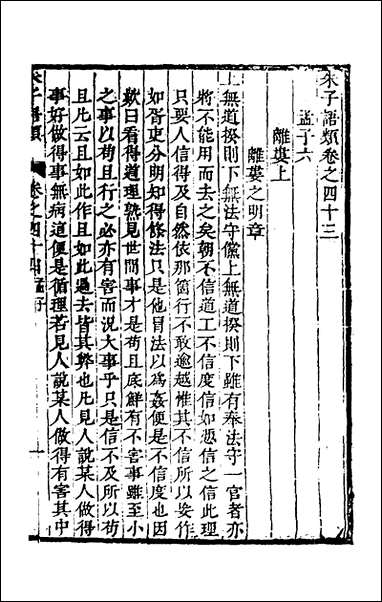 朱子語類卷之四十三
孟子六
離婁上
離婁之明章
上無道揆則下無法守儻上無道揆則下雖有奉法守一官者亦
將不能用而去之矣朝不信道工不信度信如憑信之信此理
只要人信得及自然依那箇行不敢逾越惟其不信所以妄作
如胥吏分明知得條法只是他冒法以爲姦便是不信度也因
歎曰看得道理熟見世間事才是苟且底鮮有不害事雖至小
之事以苟且行之必亦有害而況大事乎只是信不及所以苟
且凡云且如此作且如此過去皆其弊也凡見人說某人做得
事好做得事無病這便是循理若見人說某人做得有害其中
朱子語類 卷之四十 孟子